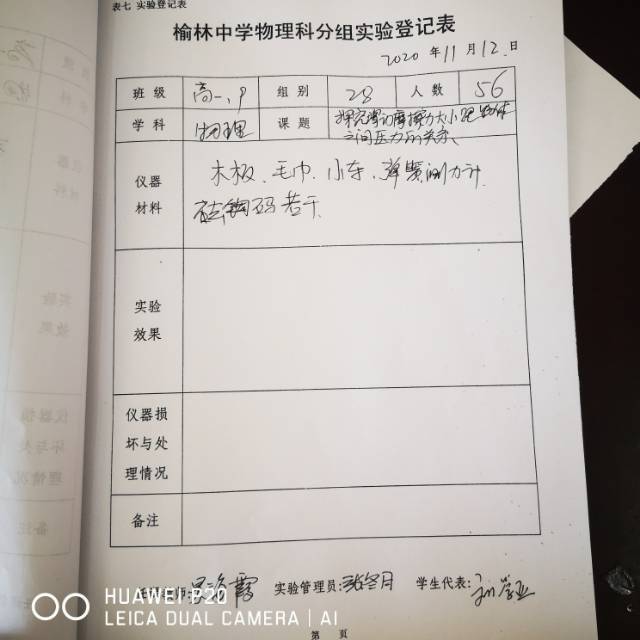 表七 实验登记表
榆林中学物理科分组实验登记表
2020 年 11 月 12 日
班级 高一、9 组别 28 人数 56
学科 物理 课题 探究滑动摩擦力大小跟物体
之间压力的关系、
仪器 木板、毛巾、小车、弹簧测力计
材料 砝码若干
实验
效果
仪器损
坏与处
理情况
备注
实验管理员: 学生代表:
第 页
HUAWEI P20
LEICA DUAL CAMERA | AI